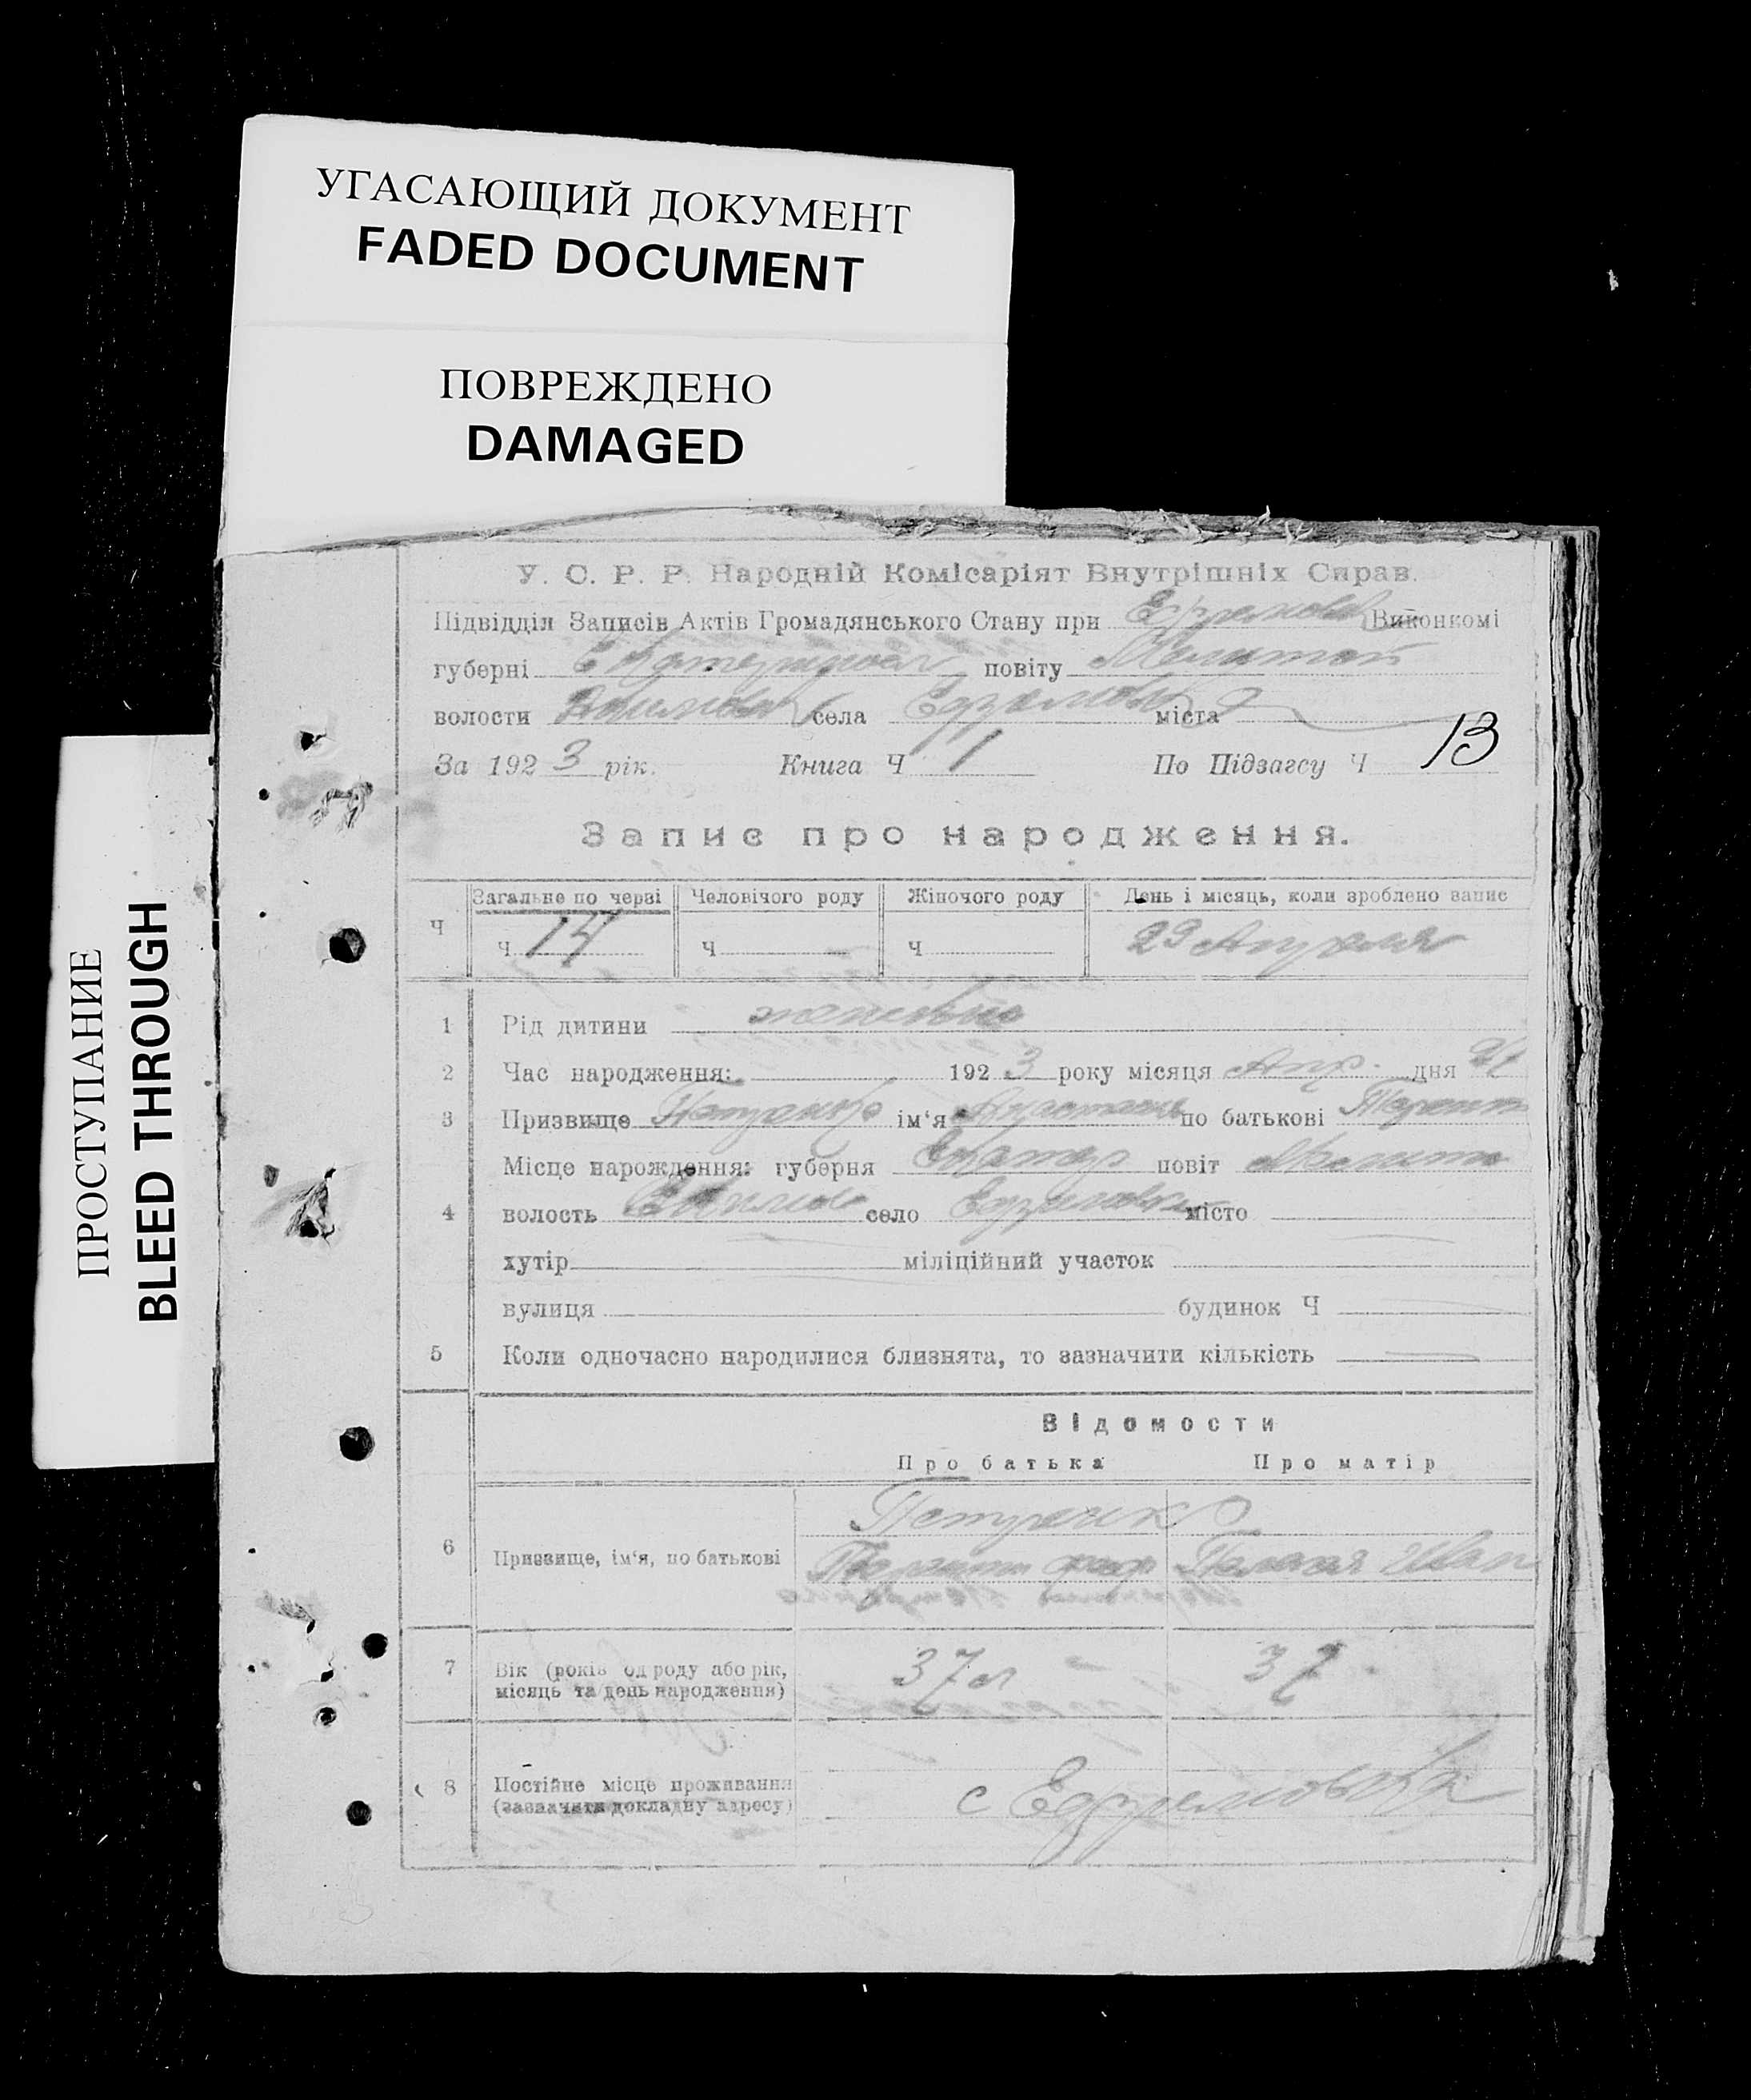 УГАСАЮЩИЙ ДОКУМЕНТ
FADED DOCUMENT
ПОВРЕЖДЕНО
DAMAGED
ПРОСТУПАНИЕ
BLEED THROUGH
У. С. Р. Р. Народній Комісаріят Внутрішніх Справ.
Підвідділ Записів Актів Громадянського Стану при Ефремовск Виконкомі
губерні повіту Мелитоп
волости села Ефремовк міста
За 1923 рік. Книга Ч 1 По Підзагсу Ч 13
Запис про народження.
Ч Загальне по черзі Человічого роду Жіночого роду День і місяць, коли зроблено запис
Ч 14 Ч Ч 29 Апреля
1 Рід дитини женский
2 Час народження: 1923 року місяця Апр. дня 21
3 Призвище Петренко ім‘я по батькові Терент
Місце нарождення: губерня Екатер повіт Мелит
4 волость село Ефремовка місто
хутір міліційний участок
вулиця будинок Ч
5 Коли одночасно народилися близнята, то зазначити кількість
Відомости
Про батька Про матір
6 Призвище, ім‘я, по батькові Петренко
Терент Пелагея Иван
7 Вік (років од роду або рік, місяць та день народження) 37 л 37
8 Постійне місце проживання (зазначити докладну адресу) с Ефремовка